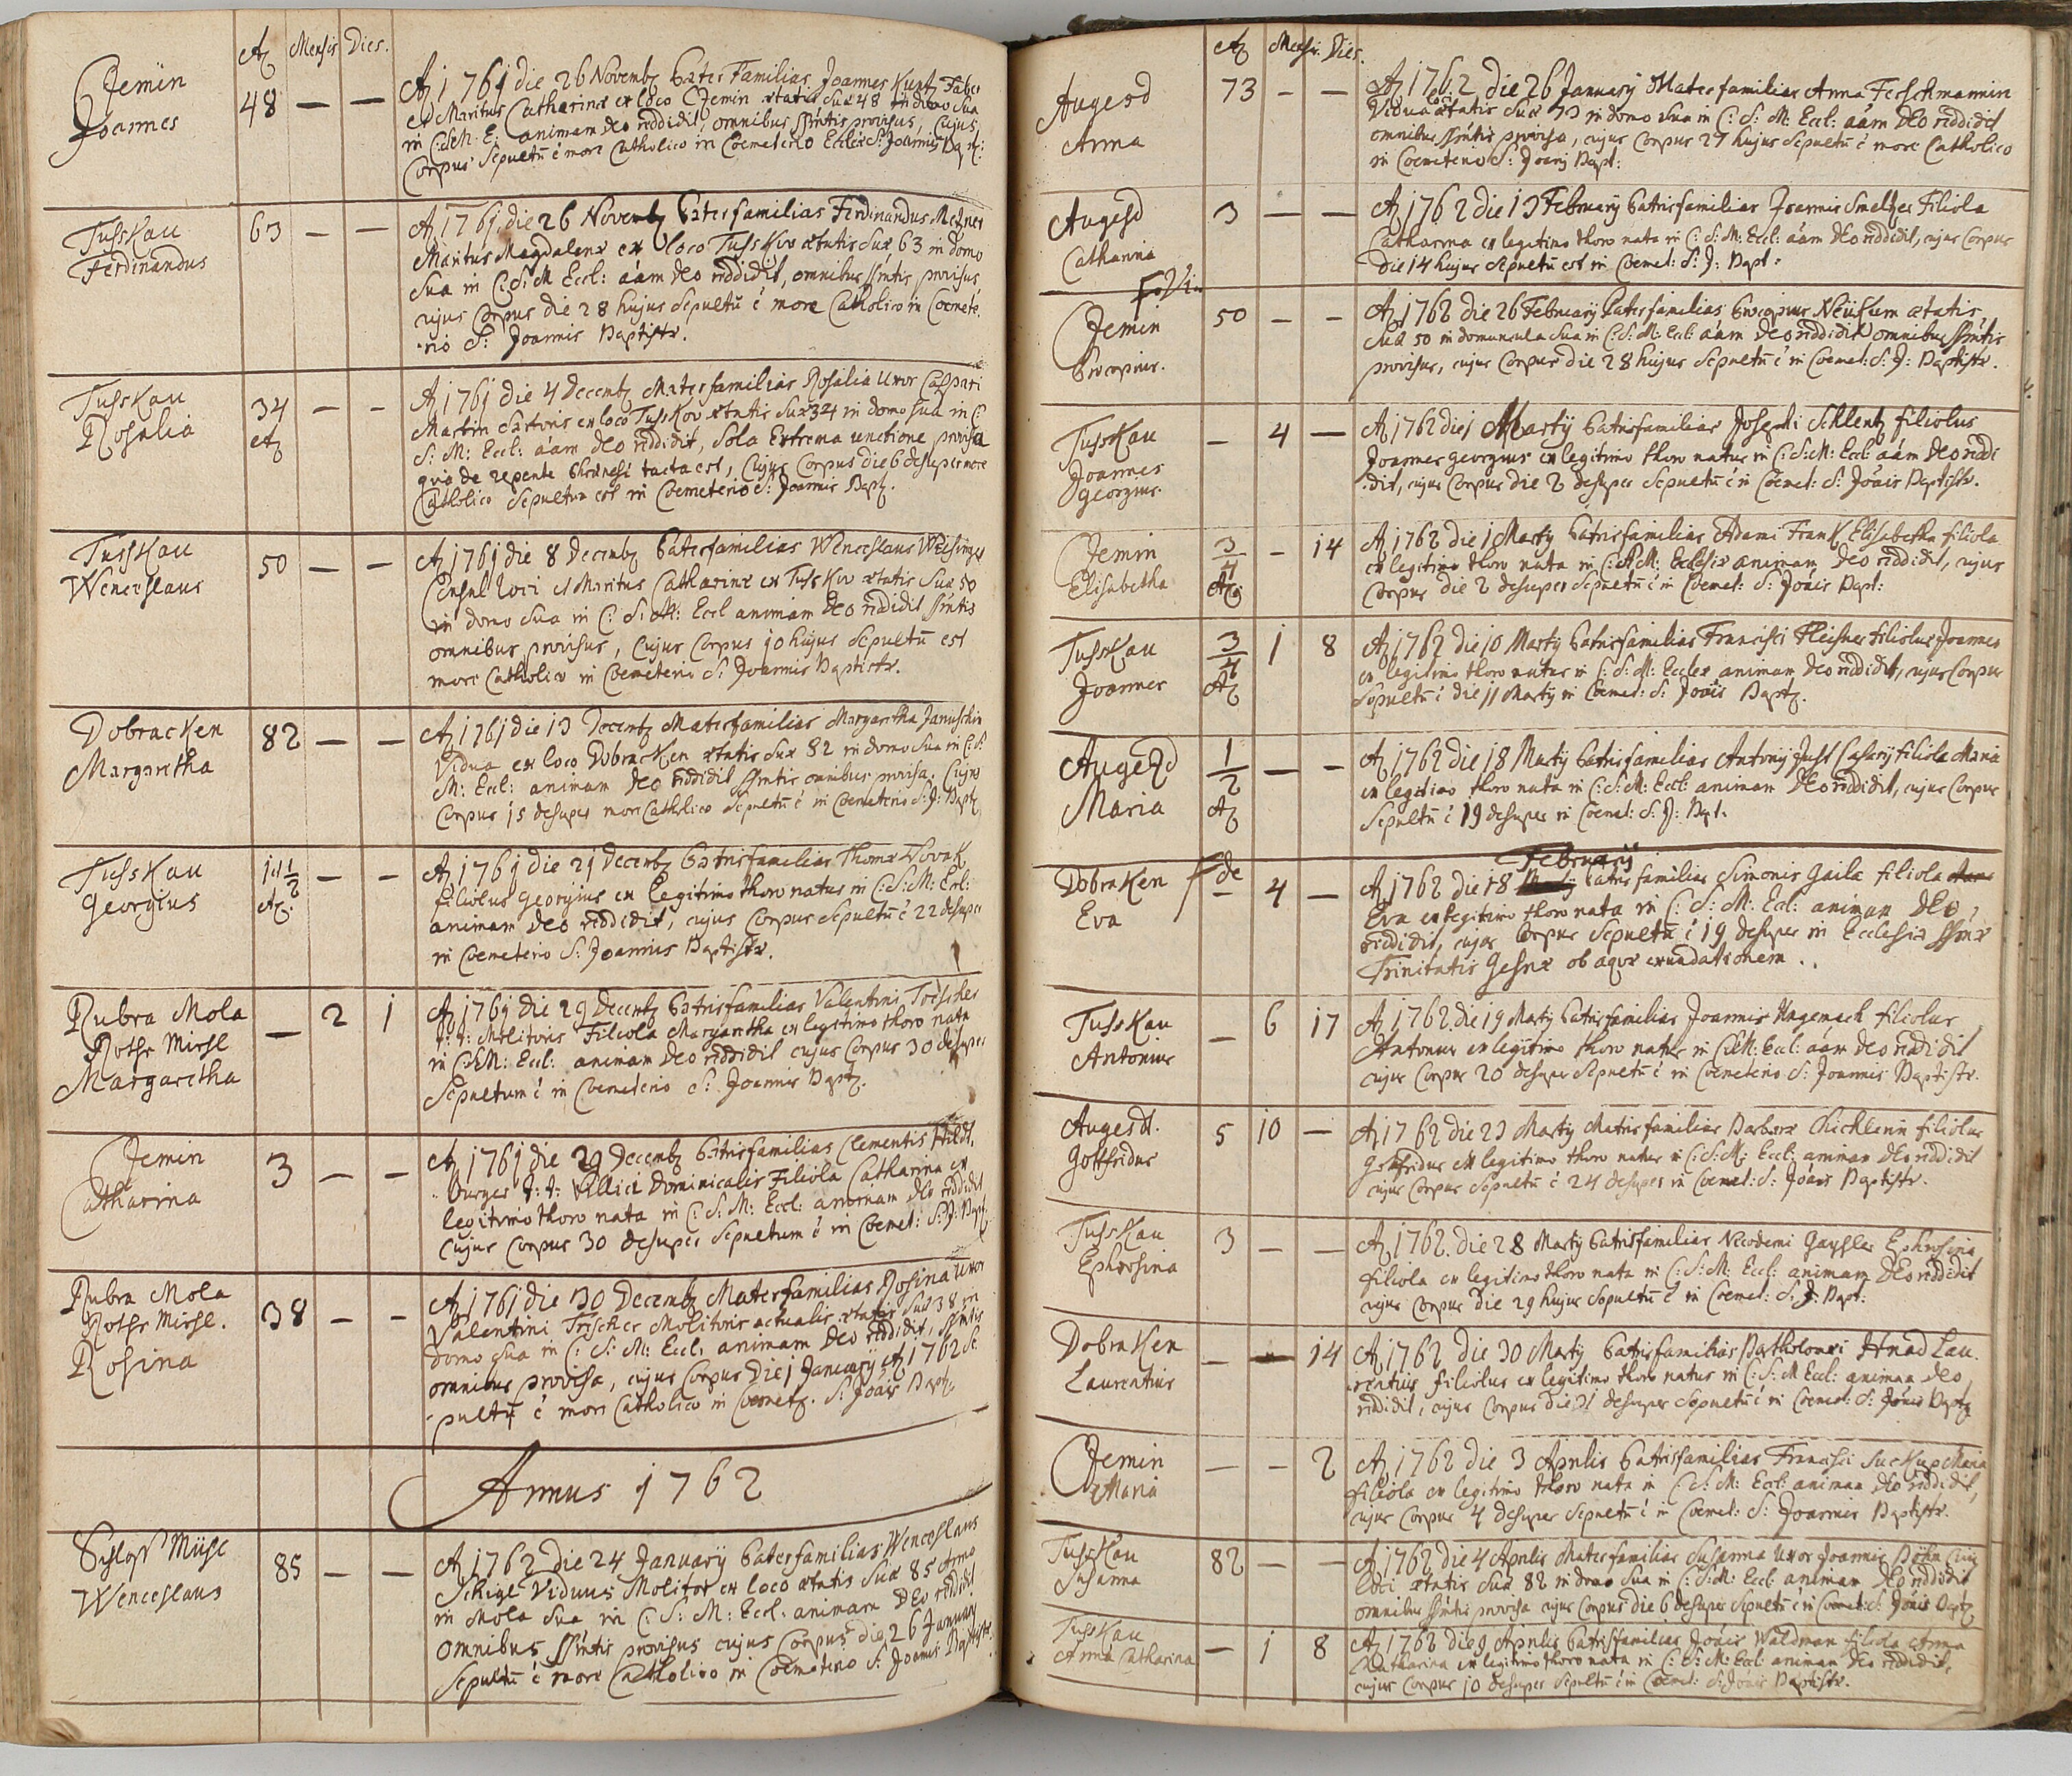 A Mensis Dies.
Cżemin
Joannes
48 — —
A 1761 die 26 Novemb Pater Familias Joannes Kuntz Faber
et Maritus Catharinæ ex loco Cżemin ætatis Suæ 48 in domo sua
in C: S: M: E: animam deo reddidit, omnibus ssmtis provisus, cujus
Corpus Sepultū ē more Catholico in Coemeterio Ecclæ S: Joannis Bapt:
Tusskau
Ferdinandus
63 — —
A 1761 die 26 Novemb Pater familias Ferdinandus Mezner
Maritus Magdalenæ ex loco Tusskov ætatis Suæ 63 in domo
sua in C: S: M Eccl: aām deo reddidit, omnibus ssmtis provisus
cujus Corpus die 28 hujus Sepultū ē more Catholico in Coemete-
rio S: Joannis Baptistæ.
Tusskau
Rosalia
34 — —
A
A 1761 die 4 Decemb Mater familias Rosalia Uxor Caspari
Martin Sartoris ex loco Tusskov ætatis Suæ 34 in domo sua in C:
S: M: Eccl: aām deo reddidit, sola Extrema unctione provisa
quia de repente Phrænesi tacta est, cujus Corpus die 6 desuper more
Catholico Sepultum est in Coemeterio S: Joannis Bapt.
Tusskau
Wenceslaus
50 — —
A 1761 die 8 Decemb Paterfamilias Wenceslaus Weisinger
Consul loci et Maritus Catharinæ ex Tusskov ætatis Suæ 50
in domo sua in C: S: M: Eccl animam deo reddidit ssmtis
omnibus provisus, cujus Corpus 10 hujus Sepultū est
more Catholico in Coemeterio S: Joannis Baptistæ.
Dobracken
Margaretha
82 — —
A 1761 die 13 Decemb Materfamilias Margaretha Januschin
Vidua ex loco Dobracken ætatis Suæ 82 in domo sua in C: S:
M: Eccl: animam deo reddidit ssmtis omnibus provisa. Cujus
Corpus 15 desuper more Catholico Sepultū ē in Coemeterio S: J: Bapt
Tusskau
Georgius
1 1/2 — —
A.
A 1761 die 21 Decemb Patrisfamilias Thomæ Novak
filiolus Georgius ex Legitimo thoro natus in C: S: M: Ecl:
animam deo reddidit, cujus Corpus Sepultū ē 22 desuper
in Coemeterio S: Joannis Baptistæ.
Rubra Mola
Rothe Mihl
Margaretha
— 2 1
A 1761 die 29 Decemb Patrisfamilias Valentini Trischer
Molitoris Filiola Margaretha ex legitimo thoro nata
in C: S: M: Eccl: animam deo reddidit cujus Corpus 30 desuper
Sepultum ē in Coemeterio S: Joannis Bapt.
Cżemin
Catharina
3 — —
A 1761 die 29 Decemb Patrisfamilias Clementis Hildt
Villici Dominicalis Filiola Catharina ex
legitimo thoro nata in C: S: M: Eccl: animam deo reddidit
cujus Corpus 30 desuper Sepultum ē in Coemet: S: J: Bapt.
Rubra Mola
Rothe Mihl.
Rosina
38 — —
A 1761 die 30 Decemb Materfamilias Rosina Uxor
Valentini Trischer Molitoris actualis ætatis Suæ 38 in
domo sua in C: S: M: Eccl: animam deo reddidit, ssmtis
omnibus provisa, cujus Corpus Die 1 January A 1762 Se-
pultū ē more Catholico in Coemet. S: Joāis Bapt.
Annus 1762
Schloss Mühl
Wenceslaus
85 — —
A 1762 Die 24 January Paterfamilias Wenceslaus
Schigl Viduus Molitor ex loco ætatis Suæ 85 Anno
in Mola Sua in C: S: M: Eccl: animam deo reddidit
omnibus ssmtis provisus cujus Corpus die 26 January
Sepultū ē more Catholico in Coemeterio S: Joannis Baptistæ.
A Mensis Dies.
Augezd
Anna
73 — —
A 1762 die 26 January Mater familias Anna Ferschmannin
Vidua ætatis Suæ 73 in domo sua in C: S: M: Eccl: aām deo reddidit
omnibus ssmtis provisa, cujus Corpus 27 hujus Sepultū ē more Catholico
in Coemeterio S: Joānis Bapt:
Augezd
Catharina
3 — —
A 1762 die 13 February Patrisfamilias Joannis Smelzer Filiola
Catharina ex legitimo thoro nata in C: S: M: Eccl: aām deo reddidit, cujus Corpus
die 14 hujus Sepultū est in Coemet: S: J: Bapt:
Cżemin
Procopius.
50 — —
A 1762 die 26 February Paterfamilias Procopius Neükum ætatis
Suæ 50 in domuncula sua in C: S: M: Eccl: aām deo reddidit omnibus ssmtis
provisus, cujus Corpus die 28 hujus Sepultū ē in Coemet: S: J: Baptistæ.
Tusskau
Joannes
Georgius.
— 4 —
A 1762 die 1 Marty Patrisfamilias Josephi Schlentz filiolus
Joannes Georgius ex legitimo thoro natus in C: S: M: Eccl: aām deo reddi
dit, cujus Corpus die 2 desuper Sepultū ē in Coemet: S: Joāis Baptistæ.
Cżemin
Elisabetha
3/4 — 14
A
A 1762 die 1 Marty Patrisfamilias Adami Frank Elisabetha filiola
ex legitimo thoro nata in C: S: M: Ecclesiæ animam deo reddidit, cujus
Corpus die 2 desuper Sepultū ē in Coemet: S: Joāis Bapt:
Tusskau
Joannes
3/4 1 8
A
A 1762 die 10 Marty Patrisfamilias Francisci Fleisner filiolus Joannes
ex legitimo thoro natus in C: S: M: Eccles animam deo reddidit, cujus Corpus
Sepultū ē die 11 Marty in Coemet: S: Joāis Bapt.
Augezd
Maria
1/2 — —
A
A 1762 die 18 Marty Patrisfamilias Antony filiola Maria
ex legitimo thoro nata in C: S: M: Eccl: animam deo reddidit, cujus Corpus
Sepultū ē 19 desuper in Coemet: S: J: Bapt.
Dobraken
Eva
— 4 —
February
A 1762 die 18 Patrisfamilias Simonis Gaila filiola
Eva ex legitimo thoro nata in C: S: M: Ecl: animam deo
reddidit, cujus Corpus Sepultū ē 19 desuper in Ecclesia ssmæ
Trinitatis Gesnæ ob aquæ exundationem.
Tusskau
Antonius
— 6 17
A 1762 die 19 Marty Patrisfamilias Joannis Hagenack filiolus
Antonius ex legitimo thoro natus in C: S: M: Eccl: aām deo reddidit
cujus Corpus 20 desuper Sepultū ē in Coemeterio S: Joannis Baptistæ.
Augezd.
Gottfridus
5 10 —
A 1762 die 23 Marty Matrisfamilias Barbaræ filiolus
Gotfridus ex legitimo thoro natus in C: S: M: Eccl: animam deo reddidit
cujus Corpus Sepultū ē 24 desuper in Coemet: S: Joāis Baptistæ.
Tusskau
Ephrosina
3 — —
A 1762 die 28 Marty Patrisfamilias Nicodemi Gaysler Ephrosina
filiola ex legitimo thoro nata in C: S: M: Eccl: animam deo reddidit
cujus Corpus die 29 hujus Sepultū ē in Coemet: S: J: Bapt:
Dobraken
Laurentius
— — 14
A 1762 die 30 Marty Patrisfamilias Bartholomæi Hnad Lau-
rentius filiolus ex legitimo thoro natus in C: S: M Eccl: animam deo
reddidit, cujus Corpus die 31 desuper Sepultū ē in Coemet: S: Joāis Bapt
Cżemin
Maria
— — 2
A 1762 die 3 Aprilis Patrisfamilias Francisci Suckup Maria
filiola ex legitimo thoro nata in C: S: M: Eccl: animam deo reddidit,
cujus Corpus 4 desuper Sepultū ē in Coemet: S: Joannis Baptistæ.
Tusskau
Susanna
82 — —
A 1762 die 4 Aprilis Materfamilias Susanna Uxor Joannis Böhm
loci ætatis Suæ 82 in domo sua in C: S: M: Eccl: animam deo reddidit
omnibus ssmtis provisa cujus Corpus die 6 desuper Sepultū ē in Coemet: S: Joāis Bapt
Tusskau
Anna Catharina
— 1 8
A 1762 die 9 Aprilis Patrisfamilias Joāis Waldman filiola Anna
Catharina ex legitimo thoro nata in C: S: M: Eccl: animam deo reddidit,
cujus Corpus 10 desuper Sepultū ē in Coemet: S: Joāis Baptistæ.